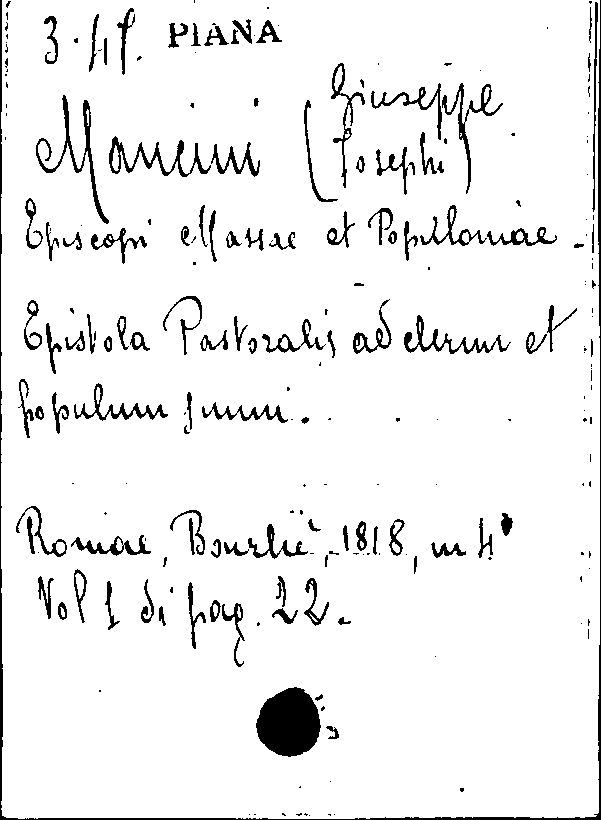 3.45. PIANA
Mancini (Giuseppe
Josephi)
Episcopi Massae et Populoniae.
Epistola Pastoralis ad clerum et
populum suum.
Romae, Bourliè, 1818, in 4°
Vol 1 di pag. 22.